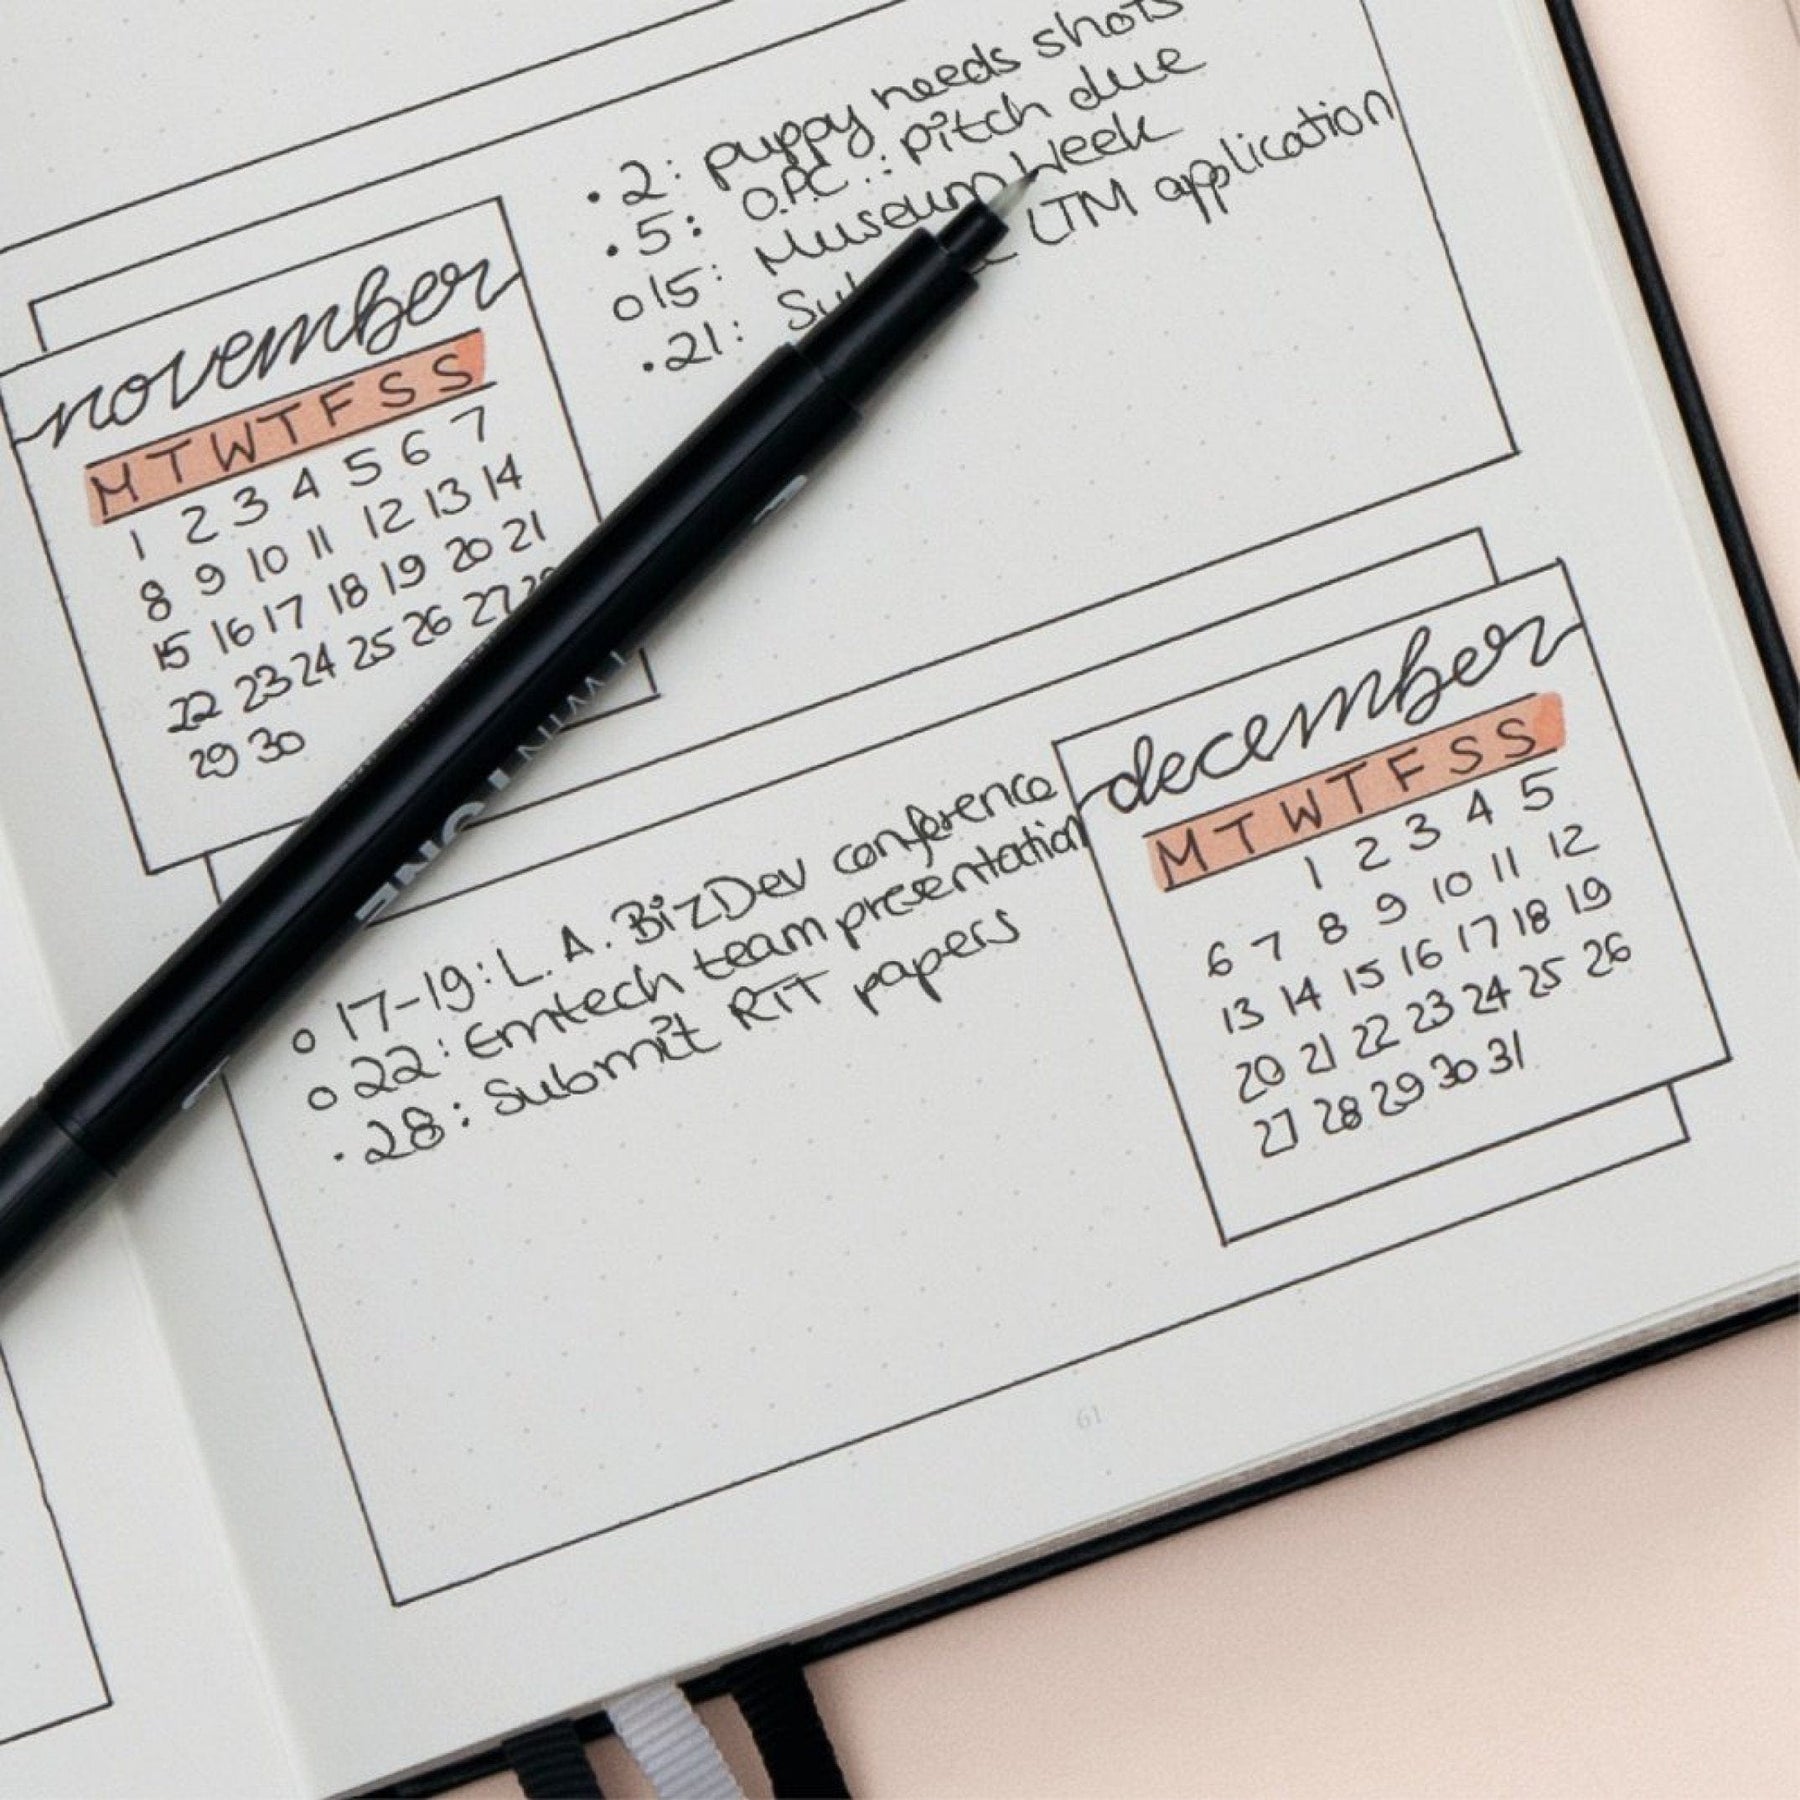 • 2: puppy needs shots
• 5: O.P.C.: pitch due
o 15: Museum Week
• 21: LTM application
november
M T W T F S S
1 2 3 4 5 6 7
8 9 10 11 12 13 14
15 16 17 18 19 20 21
22 23 24 25 26 27
29 30
december
M T W T F S S
1 2 3 4 5
6 7 8 9 10 11 12
13 14 15 16 17 18 19
20 21 22 23 24 25 26
27 28 29 30 31
o 17-19: L.A. BizDev conference
o 22: Emtech team presentation
• 28: Submit RTT papers
61